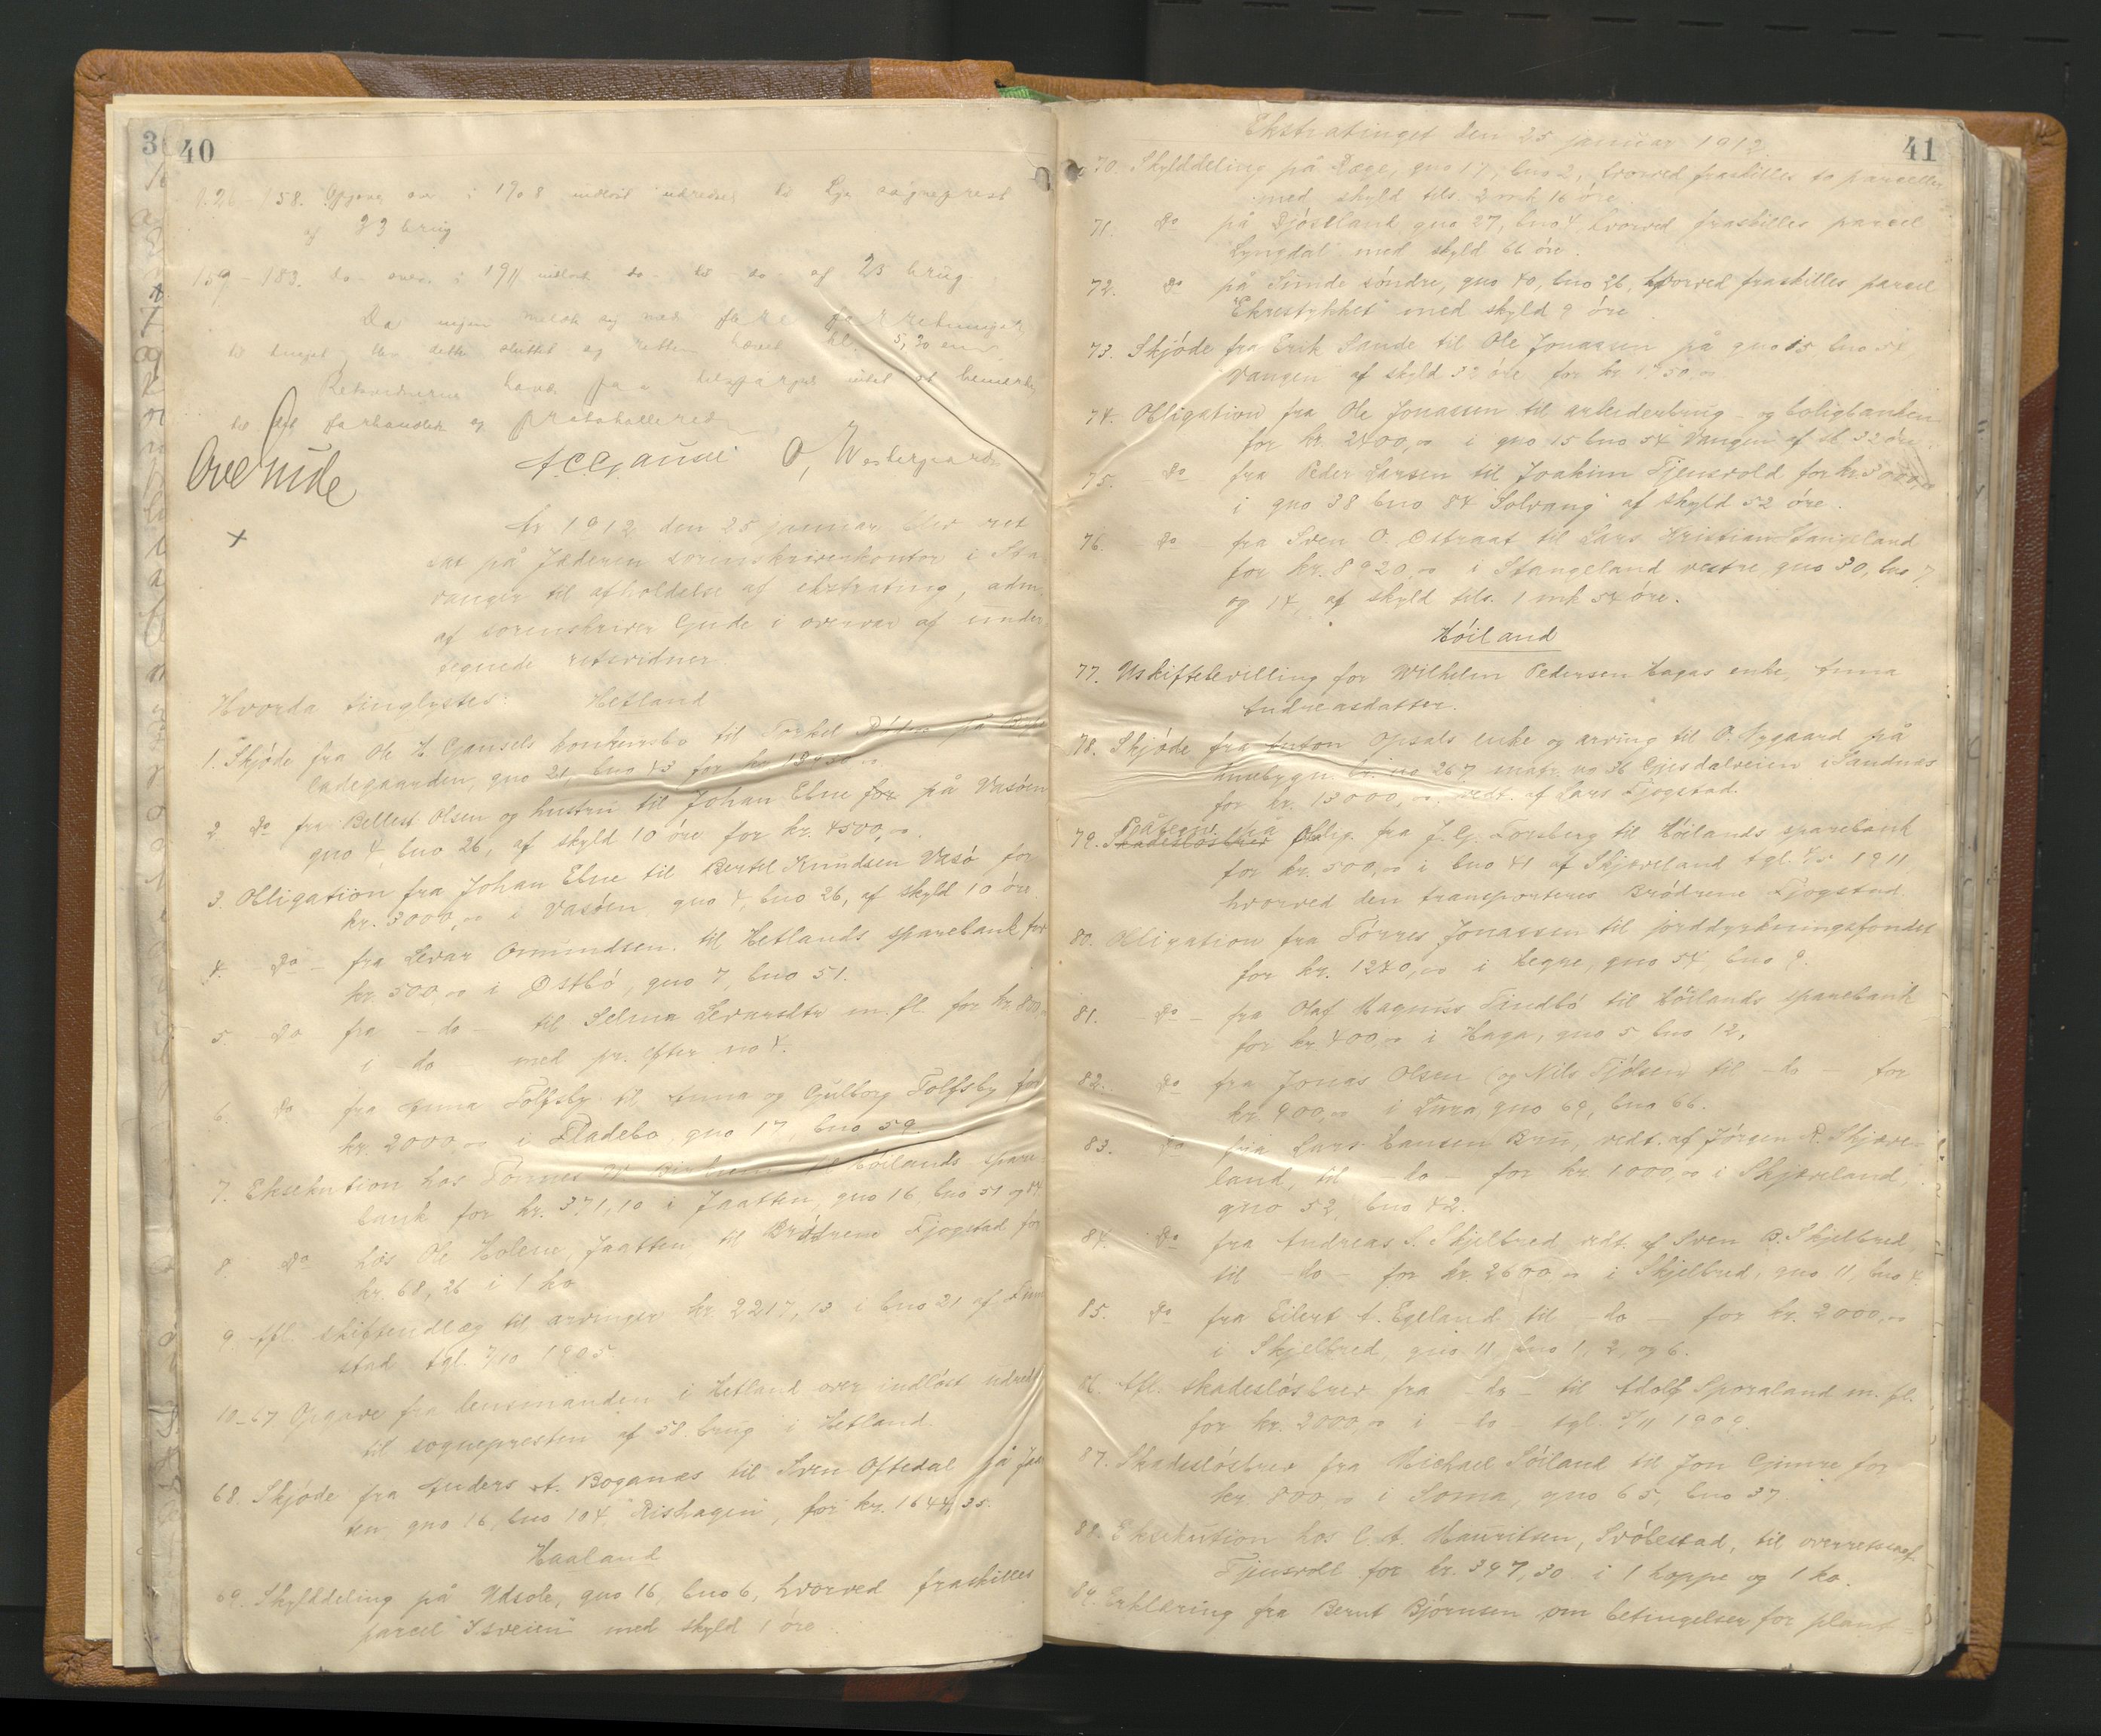 40
158. Opgave over i 1908 indløst
af 23 brug
159 – 183. do over i 1911 indløst do til do af 23 brug
Da ingen meldte sig med flere forretninger
til tinget, blev dette sluttet og retten hævet kl. 5,30 em
intet at bemerke
til det forhandlede og protokollerede
Ove Gude A. C. Gausel O. Westergaard
+
År 1912 den 25 januar blev ret
sat på Jæderen sorenskriverkontor i Sta-
vanger til afholdelse af ekstrating, adm.
af sorenskriver Gude i overvær af under-
tegnede retsvidner.
Hvorda tinglystes: Hetland
1. Skjøde fra Ole H. Gausels konkursbo til Torkel på
ladegaarden, gno 21, bno 43 for kr.
2 Do fra Bellest Olsen og hustru til Johan Elne for på Vasøen
gno 4, bno 26, af skyld 10 øre for kr. 4500,00.
3. Obligation fra Johan Elne til Bertel Knudsen Vasø for
kr. 3000,00 i Vasøen gno 4, bno 26, af skyld 10 øre
4. Do – fra Levar Omundsen til Hetlands sparebank for
kr. 500,00 i Østbø, gno 7, bno 51.
5. Do fra – do – til Selma Levarsdtr m. fl. for kr. 800,00
i do – med pr. efter no 4.
6. Do fra Anna Tolfsby til Anna og Gulborg Tolfsby for
kr. 2000,00 i Fladebo, gno 17, bno 59.
7. Eksekution hos Tørres til Høilands spare-
bank for kr. 371,10 i Jaatten, gno 16, bno 51 og
8. Do hos Ole Holene, Jaatten til Brødrene Fjogstad for
kr. 68,26 i 1 ko
9. Afl. skifteudlæg til arvinger kr. 2217,13 i bno 21 af
stad tgl. 1905.
10–67 Opgave fra lensmanden i Hetland over indløst udreds
til sognepresten af 58 brug i Hetland.
68. Skjøde fra Anders A. Boganæs til Sven Oftedal på Jaat-
ten, gno 16, bno 104 "Rishagen", for kr. 1644,35.
Haaland
69. Skylddeling på Udsole, gno 16, bno 6, hvorved fraskilles
parcel "Isveien" med skyld 1 øre.
Ekstratinget den 25 januar 1912. 41
70. Skylddeling på Ræge, gno 17, bno 2, hvorved fraskilles to parceller
med skyld tils. 2 mk 16 øre.
71. Do på gno 27, bno 4 hvorved fraskilles parcel
"Lyngdal" med skyld 66 øre.
72. Do på Sunde søndre, gno 40, bno 26, hvorved fraskilles parcel
"Ekrestykket" med skyld 9 øre.
73. Skjøde fra Erik Sande til Ole Jonassen på gno 15 bno 54
"Vangen" af skyld 32 øre for kr.
74. Obligation fra Ole Jonassen til arbeiderbrug- og boligbanken
for kr. 2400,00 i gno 15 bno 54 "Vangen" af sk. 32 øre.
75. Do fra Peder Larsen til Joakim Tjensvold for kr. 3000,00
i gno 38 bno 84 "Solvang" af skyld 52 øre.
76. – Do – fra Sven O. Østraat til Lars Kristian Stangeland
for kr. 8920,00 i Stangeland vestre, gno 30, bno 7
og 14, af skyld tils. 1 mk 54 øre.
Høiland
77. Uskiftebevilling for Wilhelm Pedersen Hagas enke, Anna
Andreasdatter.
78. Skjøde fra Anton Opsals enke og arving til O. Nygaard på
husebygn. br. no 267 matr. no 36 Gjesdalveien i Sandnæs
for kr. 13000,00. vedt. af Lars Fjogstad.
79. Skadesløsbrev Påtegn. på Oblig. fra J. G. Forsberg til Høilands sparebank
for kr. 500,00 i bno 41 af Skjæveland tgl. 1911
hvorved den transporteres Brødrene Fjogstad.
80. Obligation fra Tørres Jonassen til jorddyrkningsfondet
for kr. 1240,00 i Hegre, gno 54, bno 9.
81. – Do – fra Olaf Magnus Lindbø til Høilands sparebank
for kr. 400,00 i Haga, gno 5 bno 12.
82. Do fra Jonas Olsen (og Nils Fjølsen) til – do – for
kr. 900,00 i Lura, gno 69, bno 66.
83. Do fra Lars Hansen Bru, vedt. af Jørgen R. Skjæve-
land, til – do – for kr. 1000,00 i Skjæveland,
gno 52, bno 42.
84. Do fra Andreas S. Skjelbred vedt. af Sven B. Skjelbred,
til – do – for kr. 2600,00 i Skjelbred, gno 11, bno 4.
85. Do fra Eilert A. Egeland til – do – for kr. 2000,00
i Skjelbred, gno 11, bno 1, 2, og 6.
86. Afl. skadesløsbrev fra – do – til Adolf Sporaland m. fl.
for kr. 2000,00 i – do – tgl. 1909.
87. Skadesløsbrev fra Michael Søiland til Jon Gimre for
kr. 800,00 i Soma, gno 65, bno 37
88. Eksekution hos C. A. Mauritsen, Svølestad, til overretssagf.
Tjensvoll for kr. 397,30 i 1 hoppe og 1 ko.
89. Erklæring fra Bernt Bjørnsen om betingelser for plant-